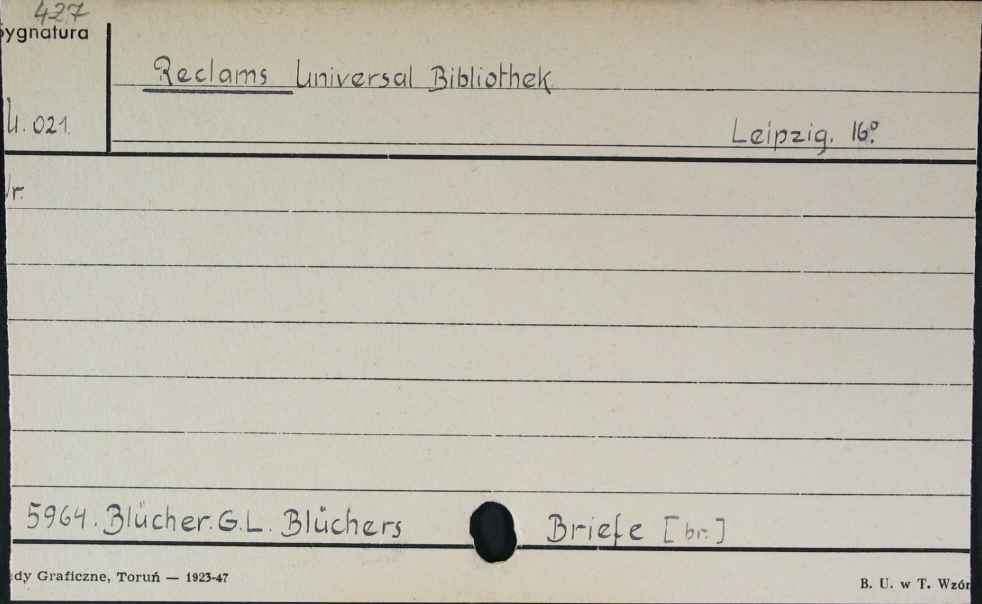 427
Sygnatura
Reclams Universal Bibliothek
U. 021.
Leipzig. 16º.
Nr.
5964. Blücher. G. L. Blüchers Briefe [br.]
dy Graficzne, Toruń — 1923-47
B. U. w T. Wzór